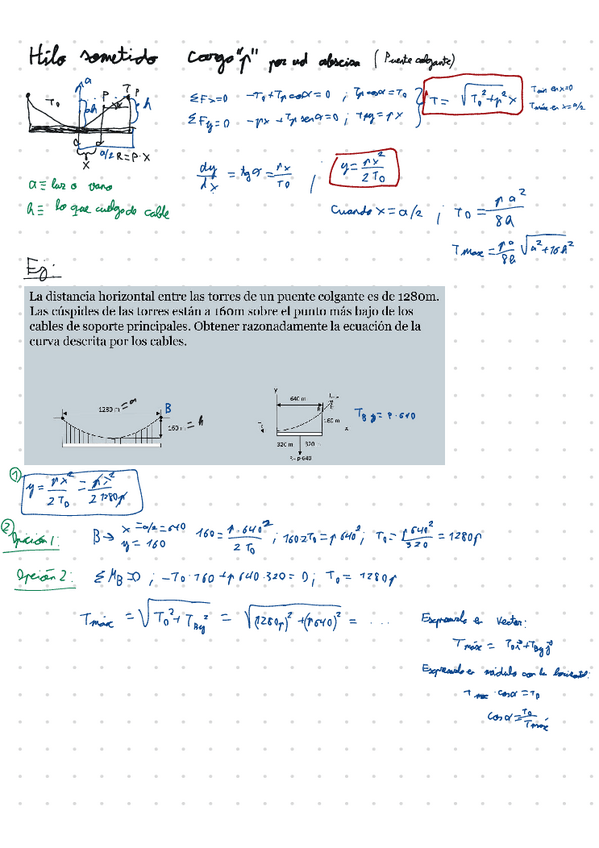 Hilo sometido carga "p" por ud abscisa (Puente colgante)
a
T P
P
T0
h
ΣFx=0 -T0+Tp cosα=0 ; Tp cosα=T0
ΣFy=0 -px+Tp senα=0 ; Tpy=px
T= √T0²+p²x
Tmin en x=0
Tmáx en x=a/2
a/2 R=P·X
X
a≡ luz o vano
h≡ lo que cuelga de cable
dy/dx = tgα = px/T0 / y= px²/2T0
Cuando x=a/2 ; T0= pa²/8h
Tmax= pa/8h √a²+16h²
Eg:
La distancia horizontal entre las torres de un puente colgante es de 1280m.
Las cúspides de las torres están a 160m sobre el punto más bajo de los
cables de soporte principales. Obtener razonadamente la ecuación de la
curva descrita por los cables.
1280 m =a B
160 m =h
y
640 m
160 m
x
320 m 320
R=p·640
TBy=p·640
① y= px²/2T0 = px²/2·1280p
② Opción 1: B→ x=a/2=640 y=160 160= p·640²/2T0 ; 160·2T0=p640² ; T0= p640²/320 = 1280p
Opción 2: ΣMB=0 ; -T0·160+p640·320=0 ; T0=1280p
Tmáx = √T0²+TBy² = √(1280p)²+(p640)² = ...
Expresarlo en vector:
Tmáx = T0i+TByj
Expresarlo en módulo con la horizontal:
Tmax·cosα=T0
cosα= T0/Tmáx